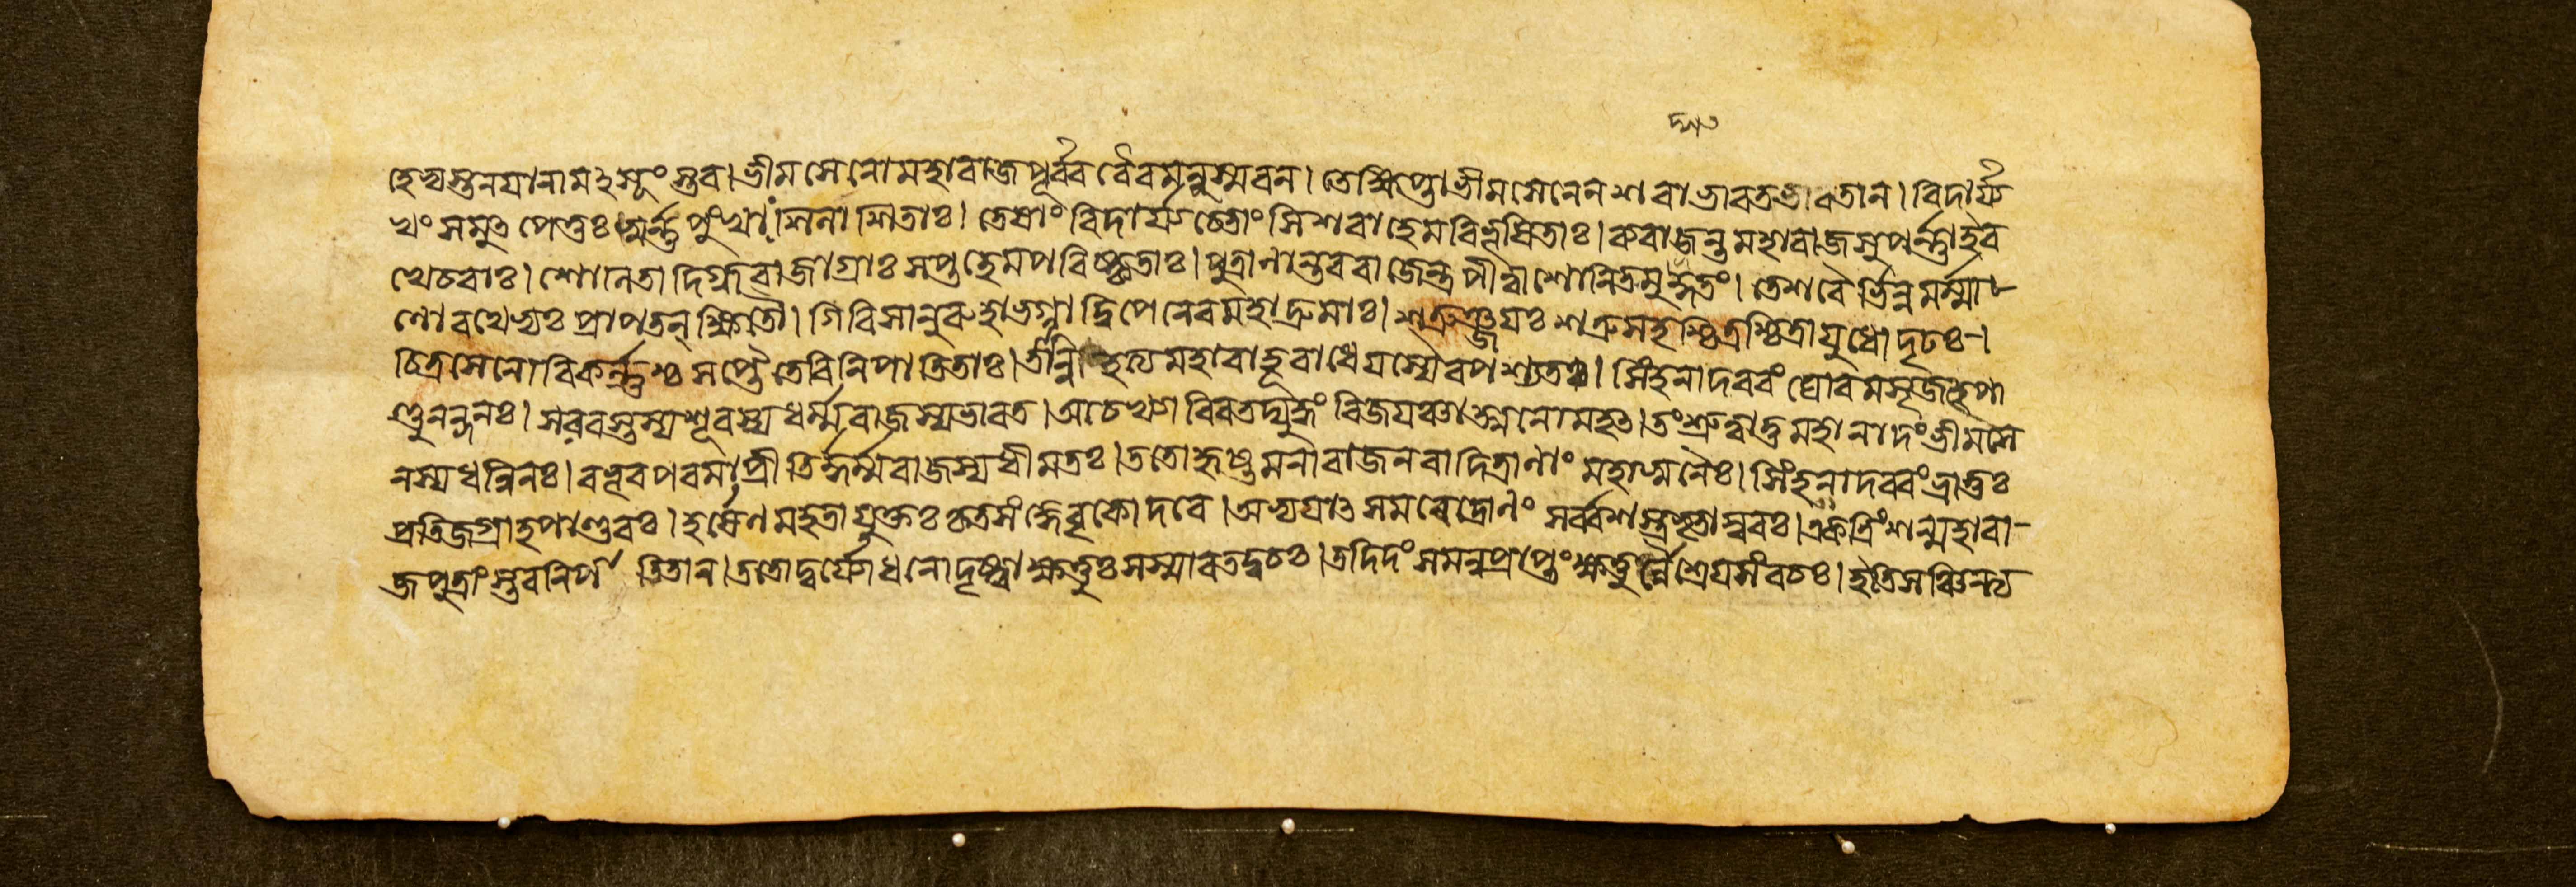 হেভ্যস্তনযানামঽসূংস্তব। ভীমসেনোমহাবাজপূর্ব্ববৈবমনুস্মবন। তেক্ষিপ্তাভীমসেনেনশবাভাবতভাবতান। বিদার্য্য
খংসমুৎপেতুঃস্বর্ন্নপুংখাঃশিলাশিতাঃ। তেষাংবিদার্য্যচেতাংসিশবাহেমবিভূষিতাঃ। ববাজন্তমহাবাজসুপর্ন্নাইব
খেচবাঃ। শোনিতাদিগ্ধবাজাগ্রাঃসপ্তহেমপবিষ্কৃতাঃ। পুত্রানান্তববাজেন্দ্রপীত্বাশোনিতমুদ্গতং। তেশবৈর্ভিন্নমর্ম্মা
ণোবথেভ্যঃপ্রাপতন্ক্ষিতৌ। গিবিসানুবুহাভগ্নাদ্বিপেনেবমহাদ্রুমাঃ। শত্রুঞ্জযঃশত্রুসহশ্চিত্রশ্চিত্রাযুধোদৃঢঃ।
চিত্রসেনোবিকর্ন্নশ্চসপ্তৈতেবিনিপাতিতাঃ। তান্নিহত্যমহাবাহূবাধেযস্যৈবপশ্যতঃ। সিংহনাদববংঘোবমসৃজৎপা
ণ্ডুনন্দনঃ। সববস্তস্যশূবস্যধর্ম্মবাজস্যভাবত। আচখ্যাবিবতদ্যুদ্ধংবিজযঞ্চাত্মনোমহৎ। তংশ্রুত্বাতুমহানাদংভীমসে
নস্যধন্বিনঃ। বভূবপবমাপ্রীতির্দ্ধর্ম্মবাজস্যধীমতঃ। ততোহৃষ্টমনাবাজনবাদিত্রানাংমহাস্বনৈঃ। সিংহনাদববংভ্রাতুঃ
প্রতিজগ্রাহপাণ্ডবঃ। হর্ষেণমহতাযুক্তঃকৃতসংজ্ঞেবৃকোদবে। অভ্যযাৎসমবেদ্রোণংসর্ব্বশস্ত্রভৃতাম্ববঃ। একত্রিংশন্মহাবা
জপুত্রাংস্তবনিপাতিতান। ততোদুর্য্যোধনোদৃষ্ট্বাক্ষত্তুঃসস্মাবতদ্বচঃ। তদিদংসমনুপ্রাপ্তংক্ষত্তুর্ন্নৈশ্রেযসংবচঃ। ইতিসঞ্চিন্ত্য